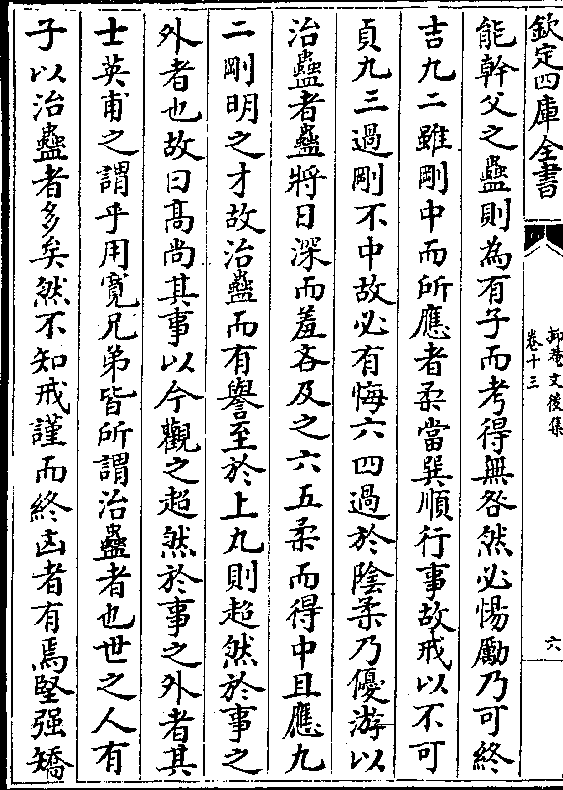 欽定四庫全書
卷十三
六
能幹父之蠱則為有子而考得無咎然必惕勵乃可終
吉九二雖剛中而所應者柔當巽順行事故戒以不可
貞九三過剛不中故必有悔六四過於陰柔乃優游以
治蠱者蠱將日深而羞吝及之六五柔而得中且應九
二剛明之才故治蠱而有譽至於上九則超然於事之
外者也故曰髙尚其事以今觀之超然於事之外者其
士英甫之謂乎用寛兄弟皆所謂治蠱者也世之人有
子以治蠱者多矣然不知戒謹而終凶者有焉堅强矯